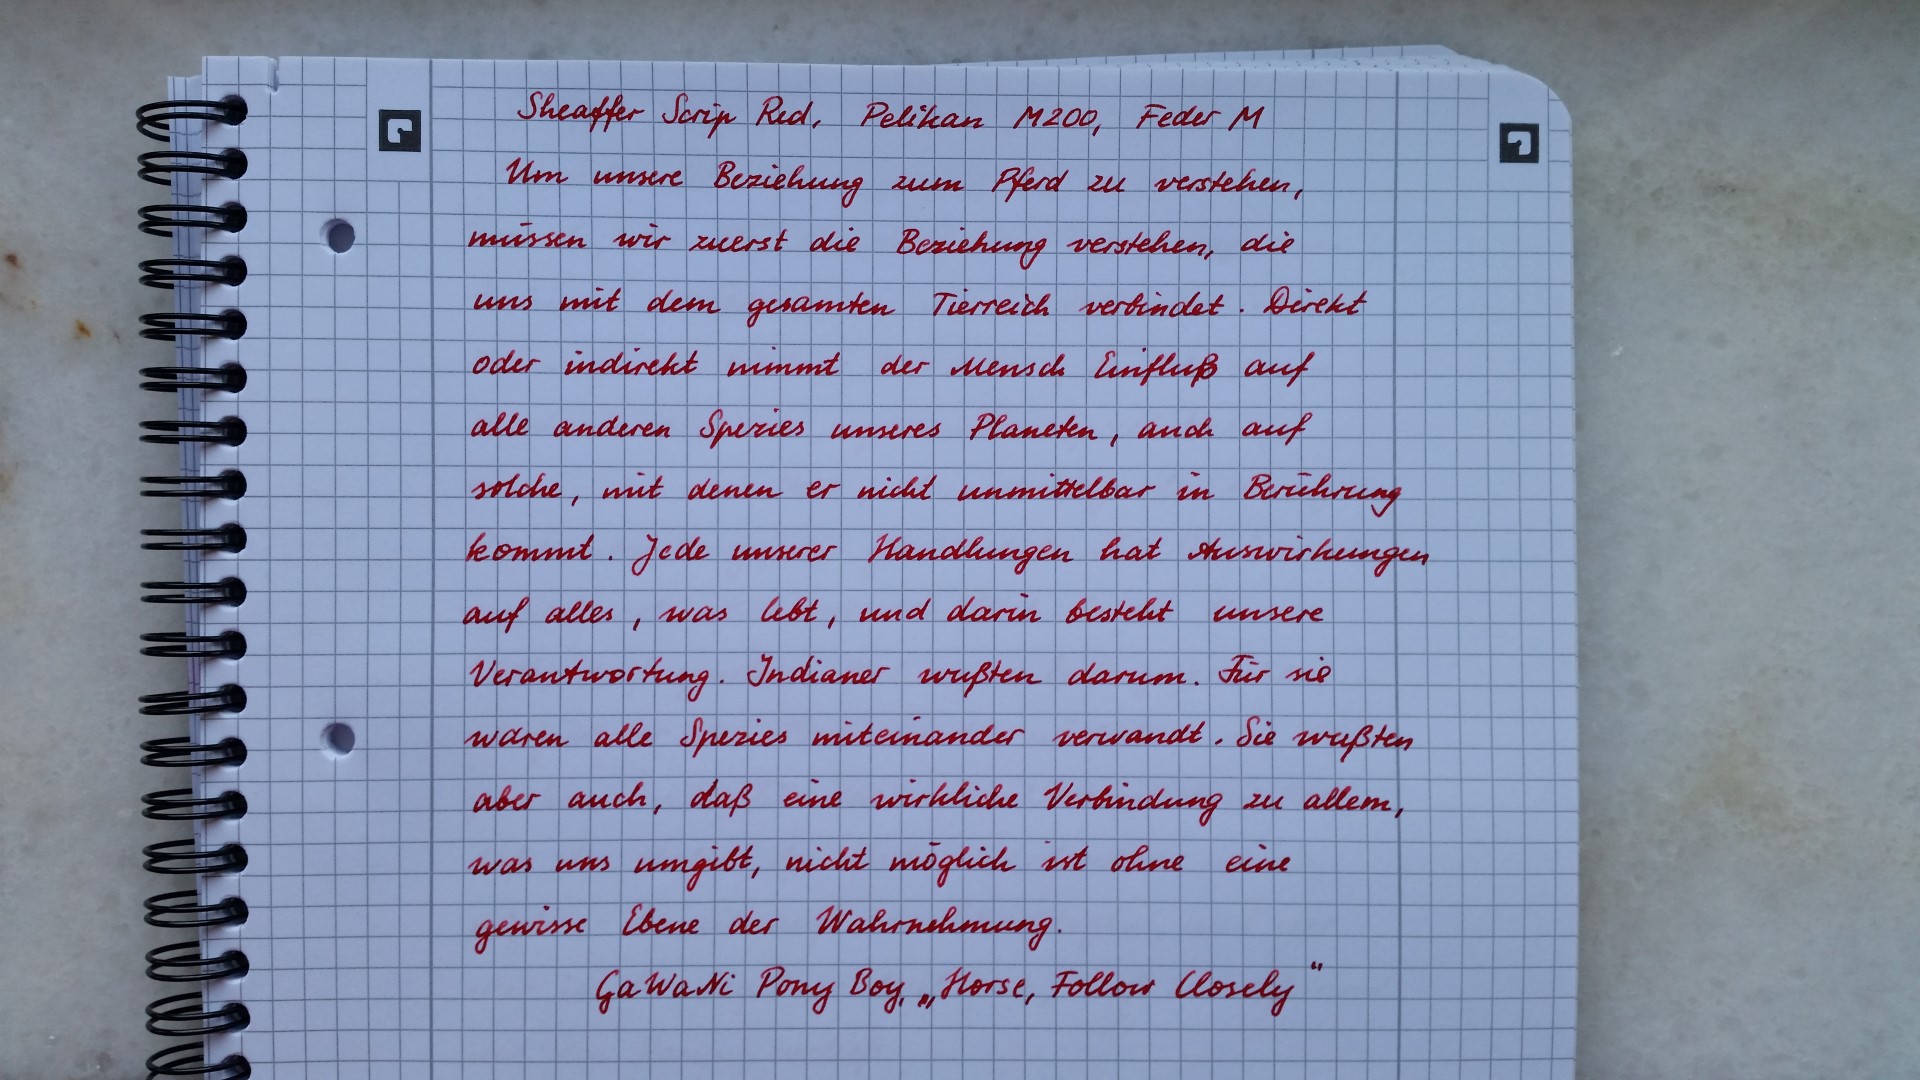 Sheaffer Scrip Red, Pelikan M200, Feder M
Um unsere Beziehung zum Pferd zu verstehen,
müssen wir zuerst die Beziehung verstehen, die
uns mit dem gesamten Tierreich verbindet. Direkt
oder indirekt nimmt der Mensch Einfluß auf
alle anderen Spezies unseres Planeten, auch auf
solche, mit denen er nicht unmittelbar in Berührung
kommt. Jede unserer Handlungen hat Auswirkungen
auf alles, was lebt, und darin besteht unsere
Verantwortung. Indianer wußten darum. Für sie
waren alle Spezies miteinander verwandt. Sie wußten
aber auch, daß eine wirkliche Verbindung zu allem,
was uns umgibt, nicht möglich ist ohne eine
gewisse Ebene der Wahrnehmung.
GaWaNi Pony Boy, „Horse, Follow Closely"